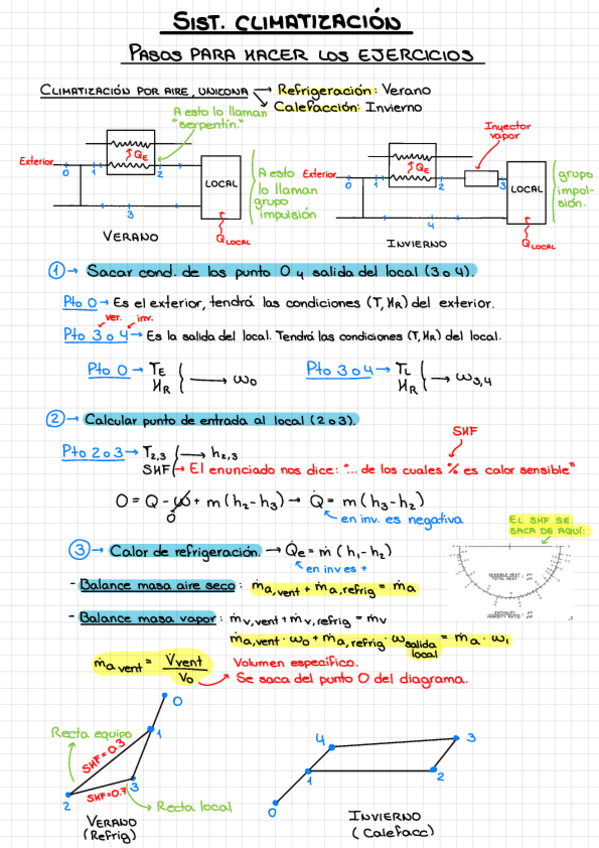 SIST. CLIMATIZACIÓN
PASOS PARA HACER LOS EJERCICIOS
CLIMATIZACIÓN POR AIRE, UNIZONA → Refrigeración: Verano
→ Calefacción: Invierno
A esto lo llaman
"serpentín."
Exterior
0 1 2
Q̇E
LOCAL
3
Q̇LOCAL
VERANO
A esto
lo llaman
grupo
impulsión
Inyector
vapor
Exterior
0 1 2 3
Q̇E
LOCAL
4
Q̇LOCAL
INVIERNO
grupo
impul-
sión.
① → Sacar cond. de los punto 0 y salida del local (3 o 4).
Pto 0 → Es el exterior, tendrá las condiciones (T, HR) del exterior.
ver. inv.
Pto 3 o 4 → Es la salida del local. Tendrá las condiciones (T, HR) del local.
Pto 0 → TE HR } → ω0
Pto 3 o 4 → TL HR } → ω3,4
② → Calcular punto de entrada al local (2 o 3).
SHF
Pto 2 o 3 → T2,3 → h2,3
SHF → El enunciado nos dice: "... de los cuales % es calor sensible"
0 = Q - ẇ + m (h2 - h3) → Q̇ = m (h3 - h2)
0
en inv. es negativa
EL SHF SE
SACA DE AQUÍ:
③ → Calor de refrigeración. → Q̇e = ṁ (h1 - h2)
en inv es +
SENSIBLE HEAT
TOTAL HEAT
ENTHALPY
HUMIDITY RATIO
- Balance masa aire seco: ṁa,vent + ṁa,refrig = ṁa
- Balance masa vapor: ṁv,vent + ṁv,refrig = ṁv
ṁa,vent · ω0 + ṁa,refrig · ωsalida local = ṁa · ω1
ṁa vent = V̇vent / V0
Volumen específico.
Se saca del punto 0 del diagrama.
0
1
Recta equipo
SHF=0.3
3
SHF=0.7
2
Recta local
VERANO
(Refrig)
4 3
1 2
0
INVIERNO
(Calefacc)